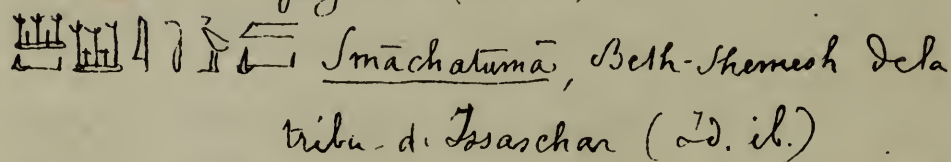 Smāchatūmā, Beth-Shemesh de la
tribu d. Issaschar (id. ib.)